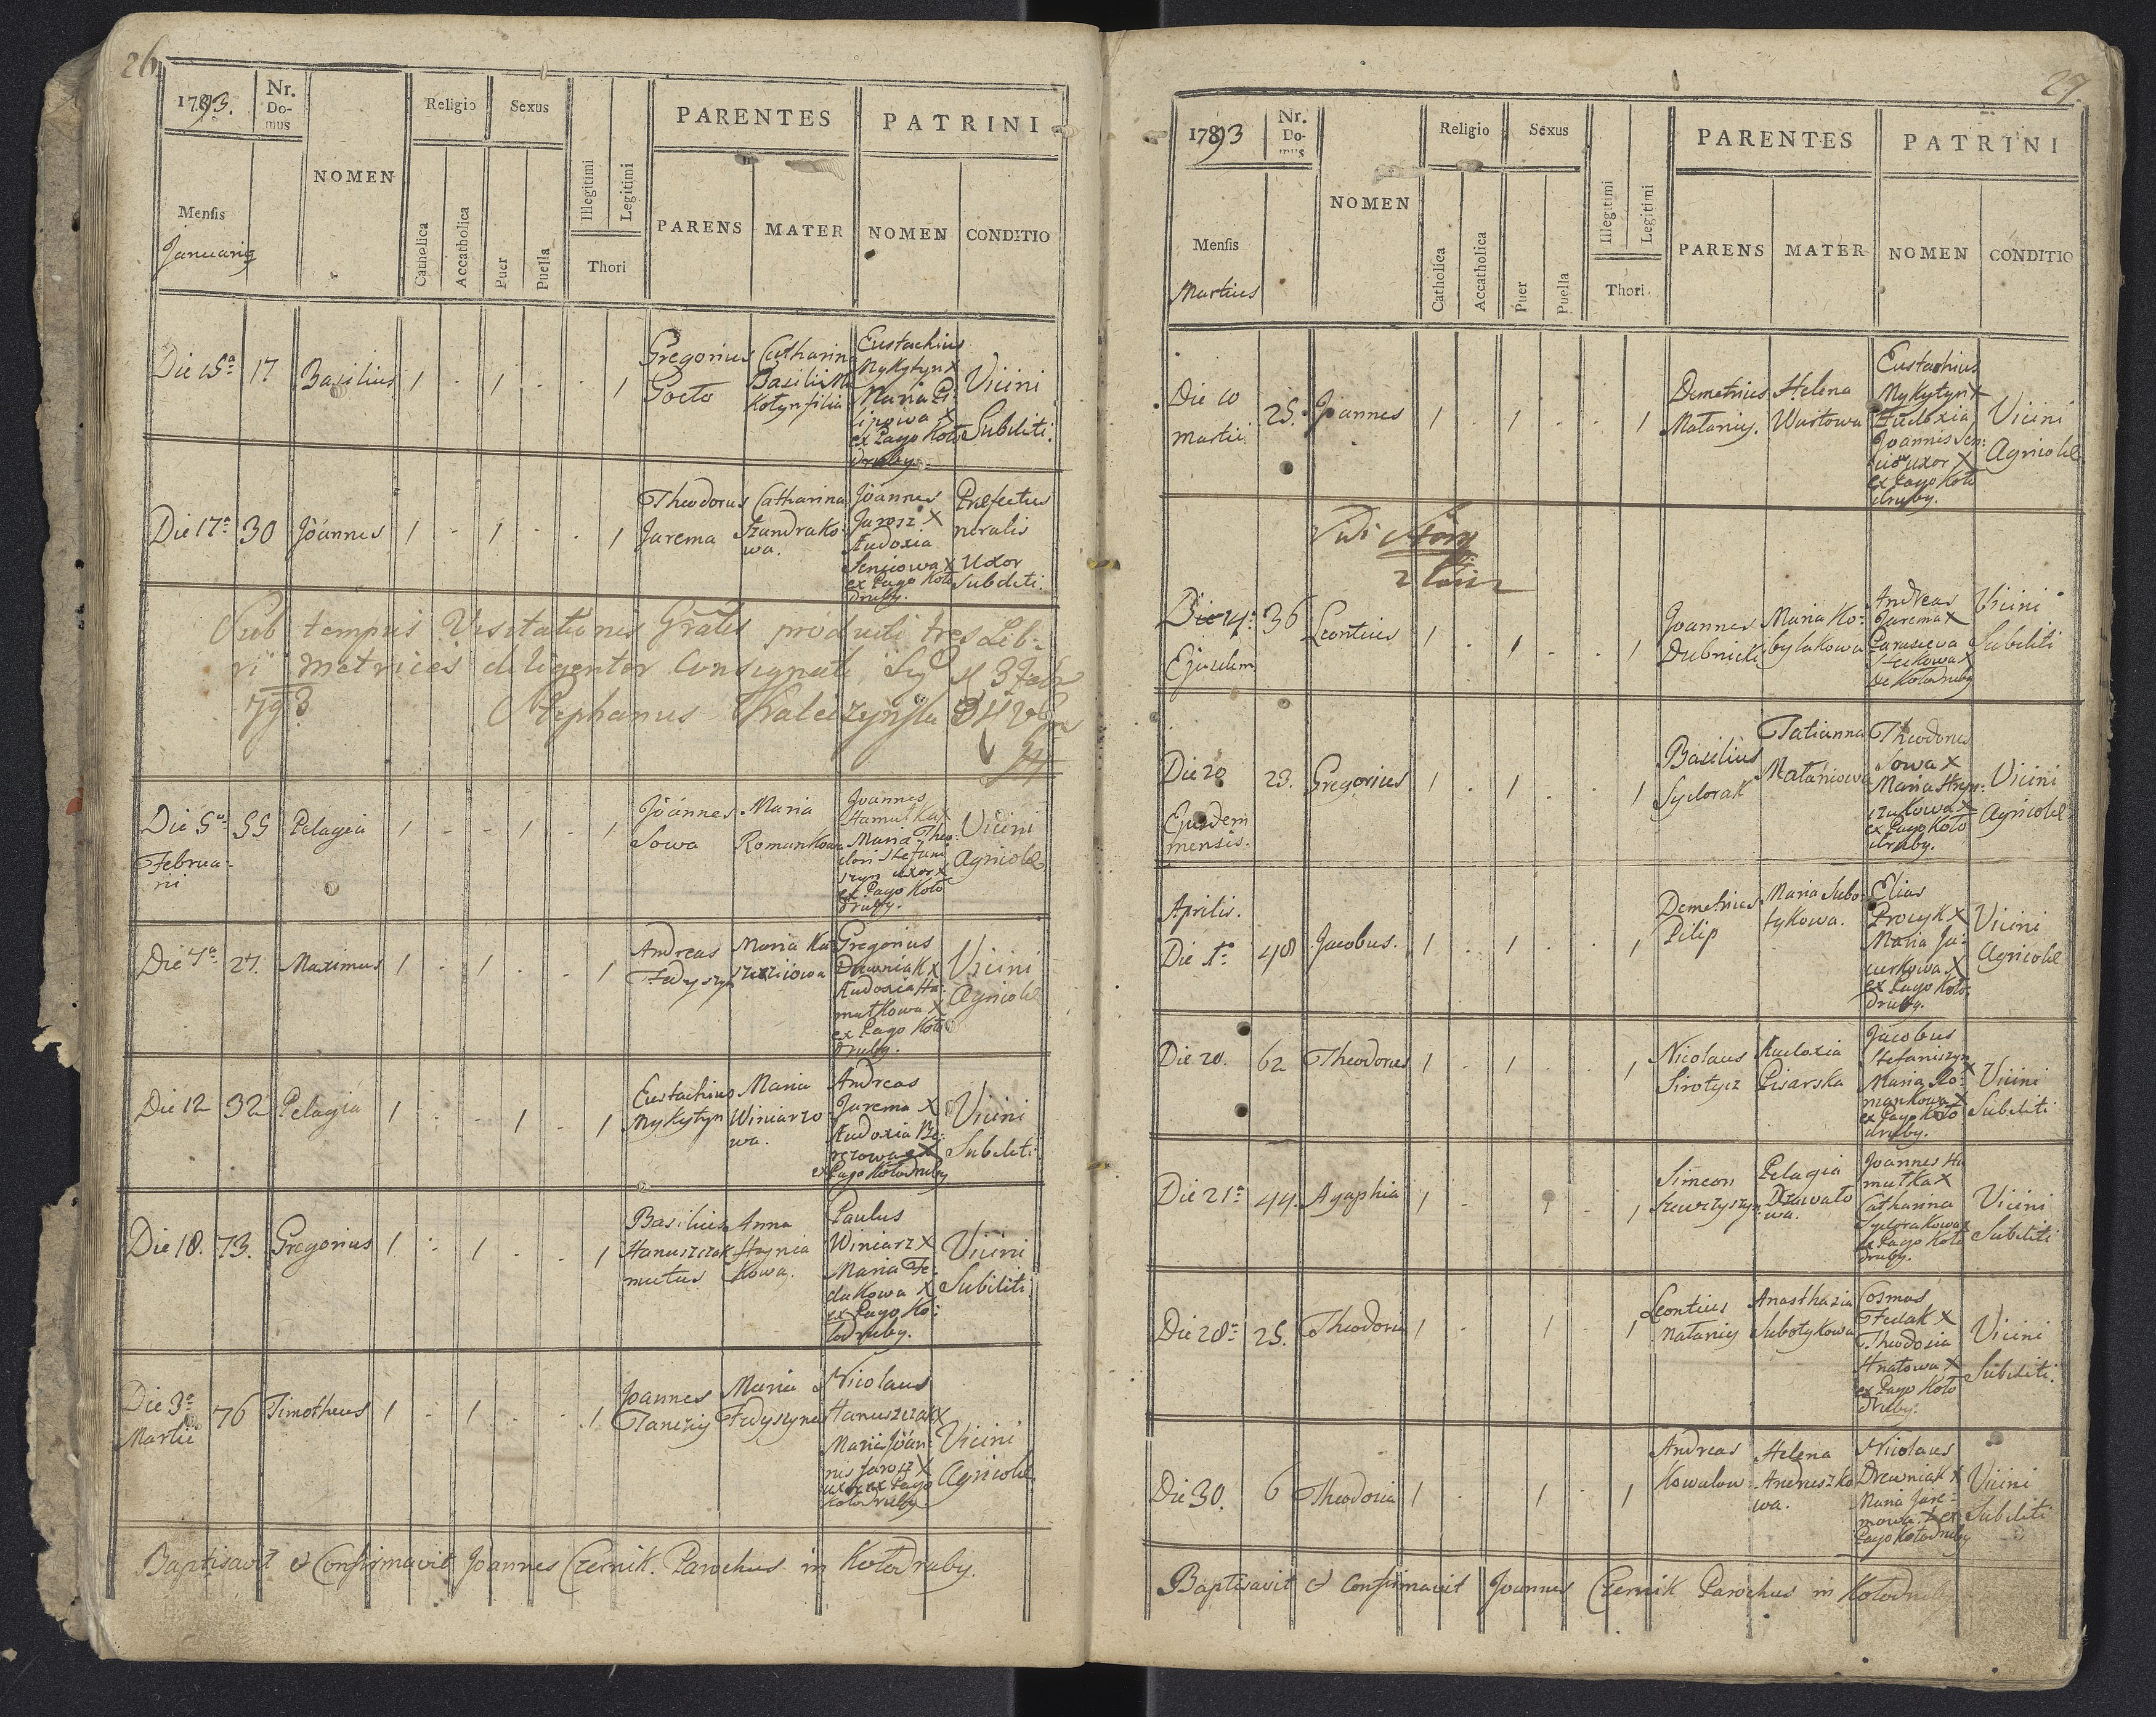 26.
1793.
Nr. Domus
NOMEN
Religio
Sexus
Catholica
Accatholica
Puer
Puella
Illegitimi
Legitimi
Thori
PARENTES
PATRINI
PARENS
MATER
NOMEN
CONDITIO
Mensis
Januarius
Die 15a 17 Basilius 1 . 1 . . 1
Gregorius
Catharina
Basilii
filia
Eustachius
Mykytyn X
Maria Pi
lipowa X
ex Pago Koło
druby.
Vicini
Subditi.
Die 17a 30 Joannes 1 - 1 . . 1
Theodorus
Jarema
Catharina
Szandrako
wa.
Joannes
Jarosz X
Eudoxia
Senziowa X
ex Pago Koło
druby.
Præfectus
Uxor
Subditi.
Sub tempus Visitationis Gratis producti tres Lib-
ri metrices diligenter Consignati
793
Stephanus
Die 5a Februarii 55 Pelagia 1 - - 1 . 1
Joannes
Sowa
Maria
Romankowa
Joannes
Hamutka X
Maria Theo
dori Stefani
szyn uxor X
ex Pago Koło
druby.
Vicini
Agricolæ
Die 7a 27. Maximus 1 . 1 . . 1
Andreas
Fedyszyn
Maria
Gregorius
Drewniak X
Eudoxia Ha
mutkowa X
ex Pago Koło
druby.
Vicini
Agricolæ
Die 12 32 Pelagia 1 . . 1 . 1
Eustachius
Mykytyn
Maria
Winiarzo
wa.
Andreas
Jarema X
Eudoxia Be
rezowa X
ex Pago Kołodruby
Vicini
Subditi
Die 18. 73. Gregorius 1 . 1 . . 1
Basilius
Hanuszczak
mutus
Anna
Hrynia
kowa.
Paulus
Winiarz X
Maria Fe
dakowa X
ex Pago Ko:
łodruby.
Vicini
Subditi
Die 3a Martii 76 Timotheus 1 . 1 . . 1
Joannes
Maria
Fedyszyna
Nicolaus
Hanuszczak X
Maria Joan
nis Jarosz X
uxor ex Pago
Kołodruby
Vicini
Agricolæ
Baptisavit & Confirmavit Joannes Czernik. Parochus in Kołodruby.
27.
1793
Nr. Domus
NOMEN
Religio
Sexus
Catholica
Accatholica
Puer
Puella
Illegitimi
Legitimi
Thori.
PARENTES
PATRINI
PARENS
MATER
NOMEN
CONDITIO
Mensis
Martius
Die 10 martii 25. Joannes 1 . 1 . . 1
Demetrius
Matanig.
Helena
Eustachius
Mykytyn X
Eudoxia
Joannis Sen:
uxor X
ex Pago Koło
druby.
Vicini
Agricolæ
Vidi
Die 14a Ejusdem 36 Leontius 1 . 1 . . 1
Joannes
Dubnicki
Maria Ko:
bylakowa
Andreas
Jarema X
Paraseva
X
de Kołodruby
Vicini
Subditi
Die 20 Ejusdem mensis. 23. Gregorius 1 . 1 . . 1
Basilius
Sydorak
Tatianna
Mataniowa
Theodorus
Sowa X
Maria Hryn:
X
ex Pago Koło
druby.
Vicini
Agricolæ
Aprilis. Die 1a 48 Jacobus. 1 . 1 . . 1
Demetrius
Pilip
Maria Subo
tykowa.
Elias
Procyk X
Maria Ja:
X
ex Pago Koło
druby.
Vicini
Agricolæ
Die 20. 62 Theodorus 1 . 1 . . 1
Nicolaus
Sirotycz
Eudoxia
Pisarska
Jacobus
Stefaniszyn X
Maria Ro:
mankowa X
ex Pago Koło
druby.
Vicini
Subditi
Die 21a 44. Agaphia 1 . . 1 . 1
Simeon
Szewczyszyn
Pelagia
Joannes Ha
mutka X
Catharina
Sydorakowa X
ex Pago Koło
druby.
Vicini
Subditi
Die 28a 25. Theodoria 1 . . 1 . 1
Leontius
Matanig
Anasthazia
Subotykowa
Cosmas
Fedak X
Theodosia
Hnatowa X
ex Pago Koło
druby.
Vicini
Subditi.
Die 30. 6 Theodoria 1 . . 1 . 1
Andreas
Kowalow
Helena
Andruszko
wa.
Nicolaus
Drewniak X
Maria Jare:
mowa. X ex
Pago Kołodruby
Vicini
Subditi
Baptisavit & Confirmavit Joannes Czernik Parochus in Kołodruby